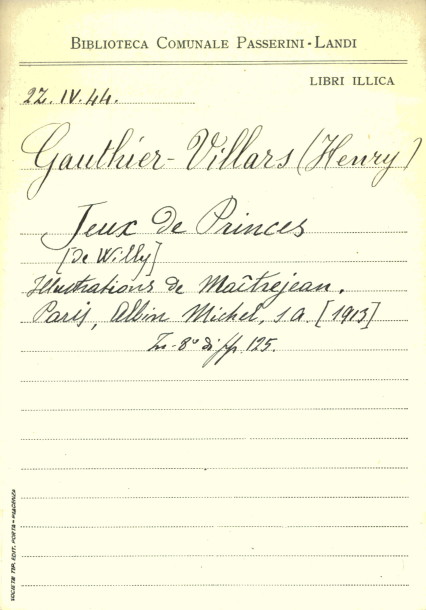 BIBLIOTECA COMUNALE PASSERINI-LANDI
LIBRI ILLICA
22. IV. 44.
Gauthier-Villars (Henry)
Jeux de Princes
[de Willy]
Illustrations de Maîtrejean.
Paris, Albin Michel, s a [1913]
In-8º di pp. 125.
SOCIETÀ TIP. EDIT. PORTA - PIACENZA